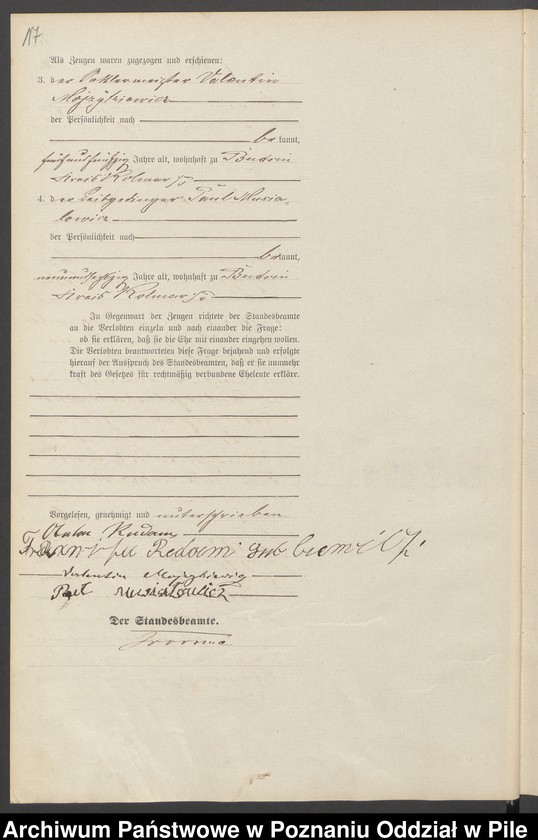 17
Als Zeugen waren zugezogen und erschienen:
3. der Sattlermeister Valentin
Mojzykiewicz
der Persönlichkeit nach
bekannt,
fünfundfünfzig Jahre alt, wohnhaft zu Budzin
Kreis Kolmar i/P
4. der Leibgedinger Paul Musia-
lowicz
der Persönlichkeit nach
bekannt,
neunundsechzig Jahre alt, wohnhaft zu Budzin
Kreis Kolmar i/P
In Gegenwart der Zeugen richtete der Standesbeamte
an die Verlobten einzeln und nach einander die Frage:
ob sie erklären, daß sie die Ehe mit einander eingehen wollen.
Die Verlobten beantworteten diese Frage bejahend und erfolgte
hierauf der Ausspruch des Standesbeamten, daß er sie nunmehr
kraft des Gesetzes für rechtmäßig verbundene Eheleute erkläre.
Vorgelesen, genehmigt und unterschrieben.
Anton
Valentin Mojzykiewicz
Paul
Der Standesbeamte.
Archiwum Państwowe w Poznaniu Oddział w Pile